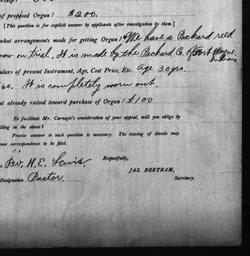 of proposed Organ? $200.
[This question is for explicit answer by applicants after investigation by them.]
what arrangements made for getting Organ? We have a Packard reed
now on trial. It is made by the Packard Co. of Fort Wayne,
Indiana
culars of present Instrument, Age, Cost Price, Etc. Age 30 yrs.
60. It is completely worn out.
nt already raised toward purchase of Organ? $100
To facilitate Mr. Carnegie's consideration of your appeal, will you oblige by
filling in the above?
Precise answer to each question is necessary. The leaving of blanks may
cause correspondence to be filed.
Respectfully,
Rev. H. E. Lewis
JAS. BERTRAM,
Designation Pastor.
Secretary.